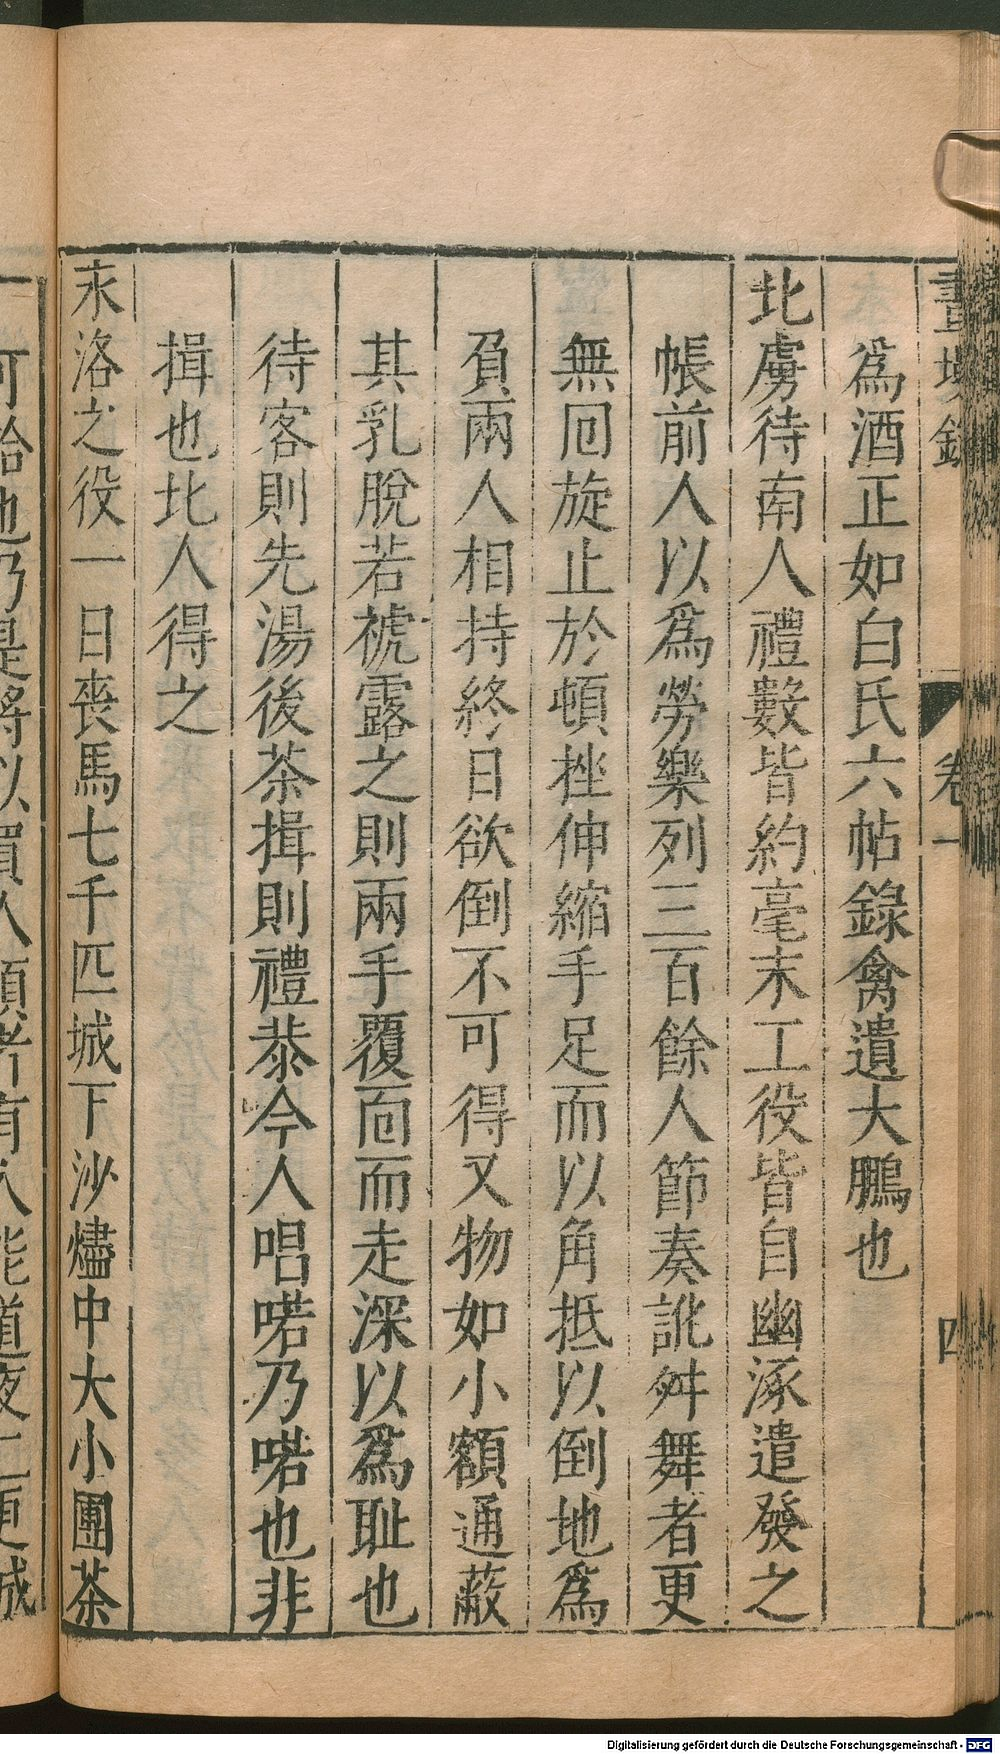 畫墁錄 卷一 四
爲酒正如白氏六帖錄禽遺大鵬也
北虜待南人禮數皆約毫末工役皆自幽涿遣發之
帳前人以爲勞樂列三百餘人節奏訛舛舞者更
無囘旋止於頓挫伸縮手足而以角抵以倒地爲
負兩人相持終日欲倒不可得又物如小額通蔽
其乳脫若褫露之則兩手覆面而走深以爲耻也
待客則先湯後茶揖則禮恭今人唱喏乃喏也非
揖也北人得之
永洛之役一日喪馬七千匹城下沙燼中大小團茶
可拾也乃是將以買人頭者有人能道夜二更城
Digitalisierung gefördert durch die Deutsche Forschungsgemeinschaft - DFG